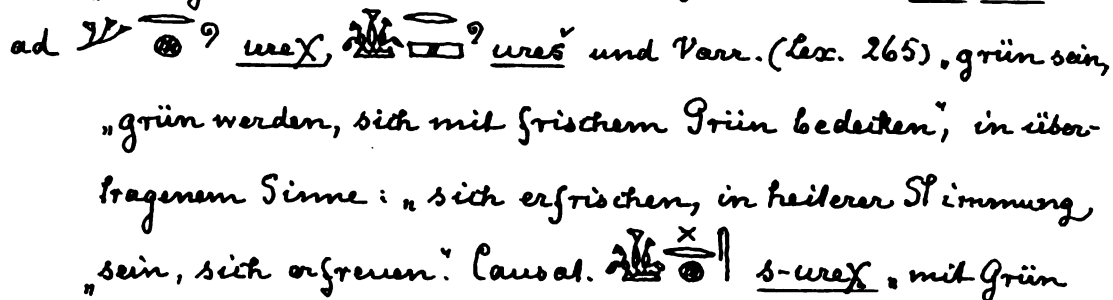 ad 𓆰𓂋𓐍 ureχ, 𓇬𓂋𓈙 ureš und Varr. (Lex. 265) „grün sein,
„grün werden, sich mit frischem Grün bedecken“, in über-
tragenem Sinne: „sich erfrischen, in heiterer Stimmung
„sein, sich erfreuen“. Causat. s-ureχ „mit Grün